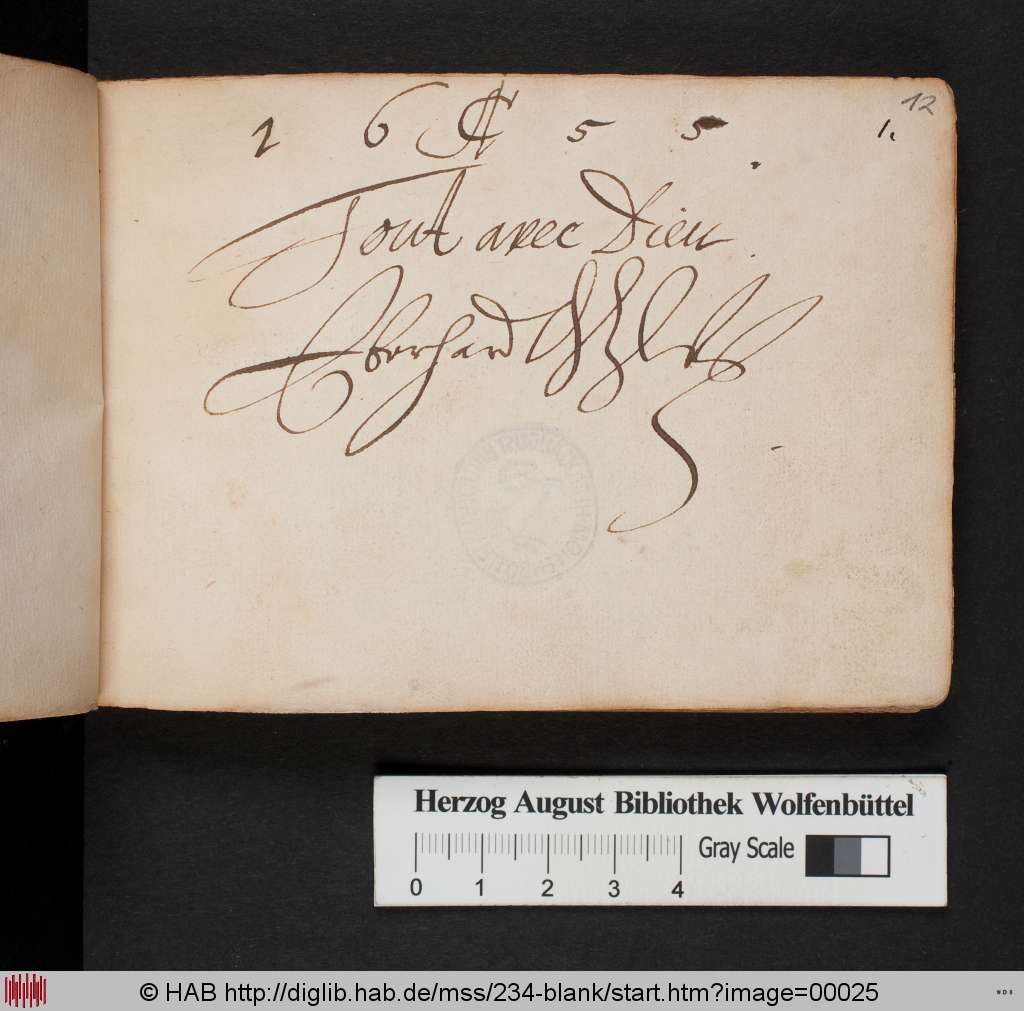 12
1 6 5 5. 1.
Tout avec Dieu
Eberhard
Herzog August Bibliothek Wolfenbüttel
Gray Scale
0 1 2 3 4
© HAB http://diglib.hab.de/mss/234-blank/start.htm?image=00025